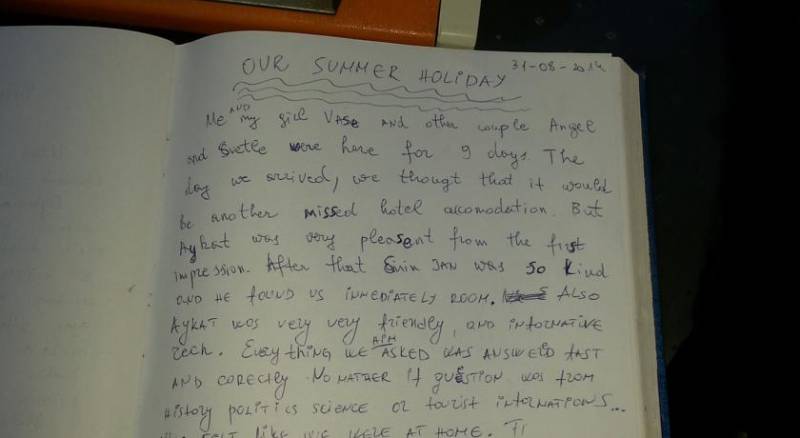 OUR SUMMER HOLIDAY 31-08-2014
Me AND my girl VASe AND other couple Angel
and Svetle were here for 9 days. The
day we arrived, we thougt that it would
be another missed hotel accomodation. But
Aykat was very pleasent from the first
impression. After that Sirin JAN was so kind
AND HE FOUND US INMEDIATELY ROOM. ALSO
AYKAT WAS VERY VERY friendly, AND INFORMATIVE
Every thing WE ASKED WAS ANSWERD FAST
AND CORECTLY NO MATHER if QUESTION WAS FROM
HISTORY POLITICS SCIENCE or TOURIST INFORMATIONS...
FELT LIKE WE WERE AT HOME.